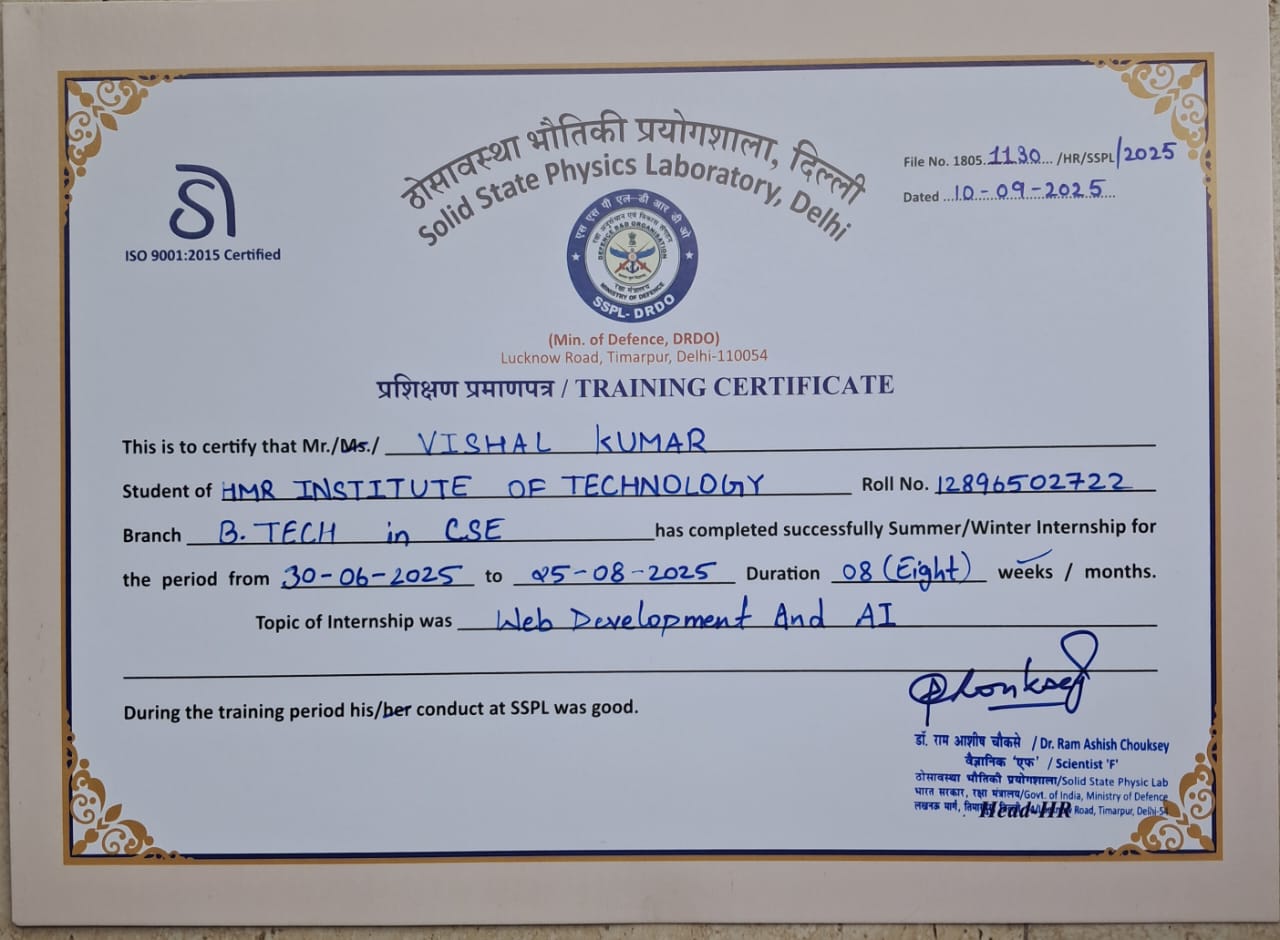 ठोसावस्था भौतिकी प्रयोगशाला, दिल्ली
Solid State Physics Laboratory, Delhi
File No. 1805.1130... /HR/SSPL/2025
Dated ...10-09-2025...
डी
ISO 9001:2015 Certified
एस एस पी एल-डी आर डी ओ
रक्षा अनुसंधान एवं विकास संगठन
DEFENCE R&D ORGANISATION
रक्षा मंत्रालय
MINISTRY OF DEFENCE
SSPL-DRDO
(Min. of Defence, DRDO)
Lucknow Road, Timarpur, Delhi-110054
प्रशिक्षण प्रमाणपत्र / TRAINING CERTIFICATE
This is to certify that Mr./Ms./ VISHAL KUMAR
Student of HMR INSTITUTE OF TECHNOLOGY Roll No. 12896502722
Branch B.TECH in CSE has completed successfully Summer/Winter Internship for
the period from 30-06-2025 to 25-08-2025 Duration 08 (Eight) weeks / months.
Topic of Internship was Web Development And AI
During the training period his/her conduct at SSPL was good.
डॉ. राम आशीष चौकसे / Dr. Ram Ashish Chouksey
वैज्ञानिक 'एफ' / Scientist 'F'
ठोसावस्था भौतिकी प्रयोगशाला/Solid State Physic Lab
भारत सरकार, रक्षा मंत्रालय/Govt. of India, Ministry of Defence
लखनऊ मार्ग, Road, Timarpur, Delhi-54
Head-HR